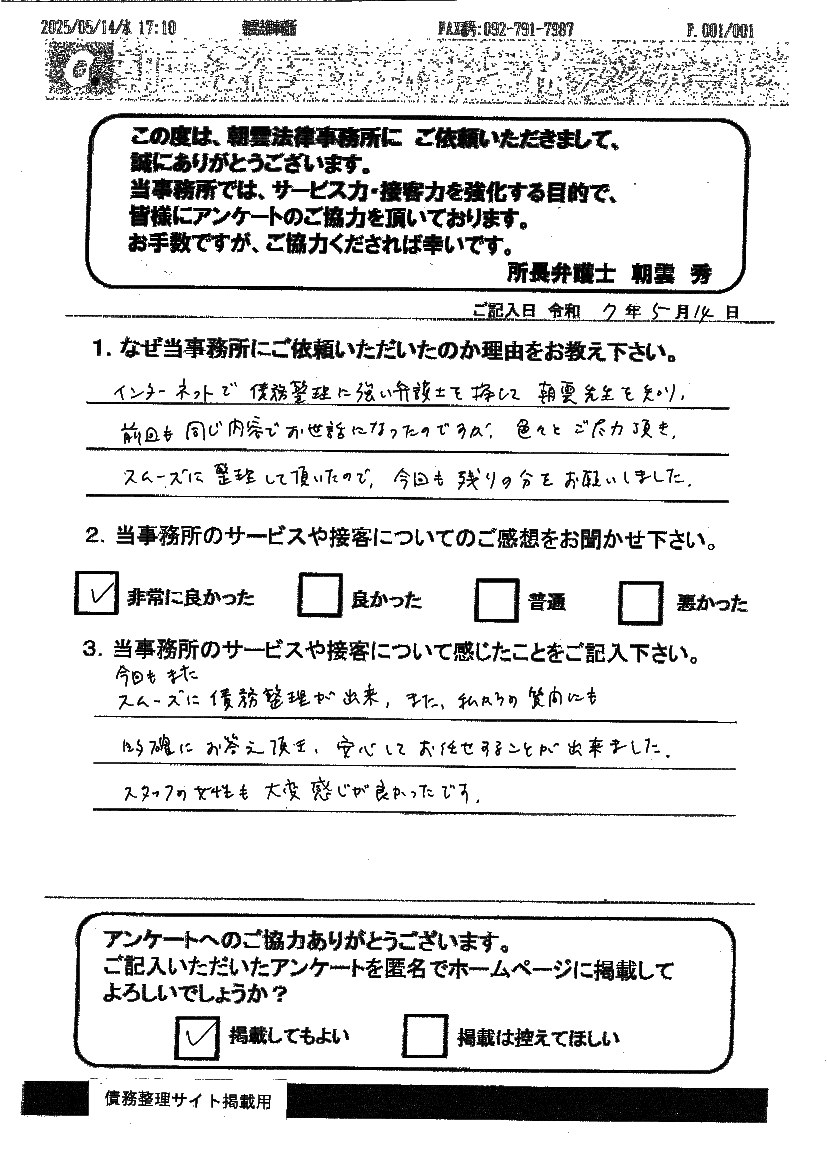 2025/05/14/水 17:10 朝雲法律事務所 FAX番号:092-791-7987 P. 001/001
朝雲法律事務所 アンケート
この度は、朝雲法律事務所に ご依頼いただきまして、
誠にありがとうございます。
当事務所では、サービス力・接客力を強化する目的で、
皆様にアンケートのご協力を頂いております。
お手数ですが、ご協力くだされば幸いです。
所長弁護士 朝雲 秀
ご記入日 令和 7 年 5 月 14 日
1. なぜ当事務所にご依頼いただいたのか理由をお教え下さい。
インターネットで 債務整理に強い弁護士を探して 朝雲先生を知り、
前回も同じ内容でお世話になったのですが、色々とご尽力頂き、
スムーズに整理して頂いたので、今回も残りの分をお願いしました。
2. 当事務所のサービスや接客についてのご感想をお聞かせ下さい。
✓ 非常に良かった 良かった 普通 悪かった
3. 当事務所のサービスや接客について感じたことをご記入下さい。
今回もまた
スムーズに債務整理が出来、また、私からの質問にも
的確にお答え頂き、安心してお任せすることが出来ました。
スタッフの女性も大変感じが良かったです。
アンケートへのご協力ありがとうございます。
ご記入いただいたアンケートを匿名でホームページに掲載して
よろしいでしょうか？
✓ 掲載してもよい 掲載は控えてほしい
債務整理サイト掲載用